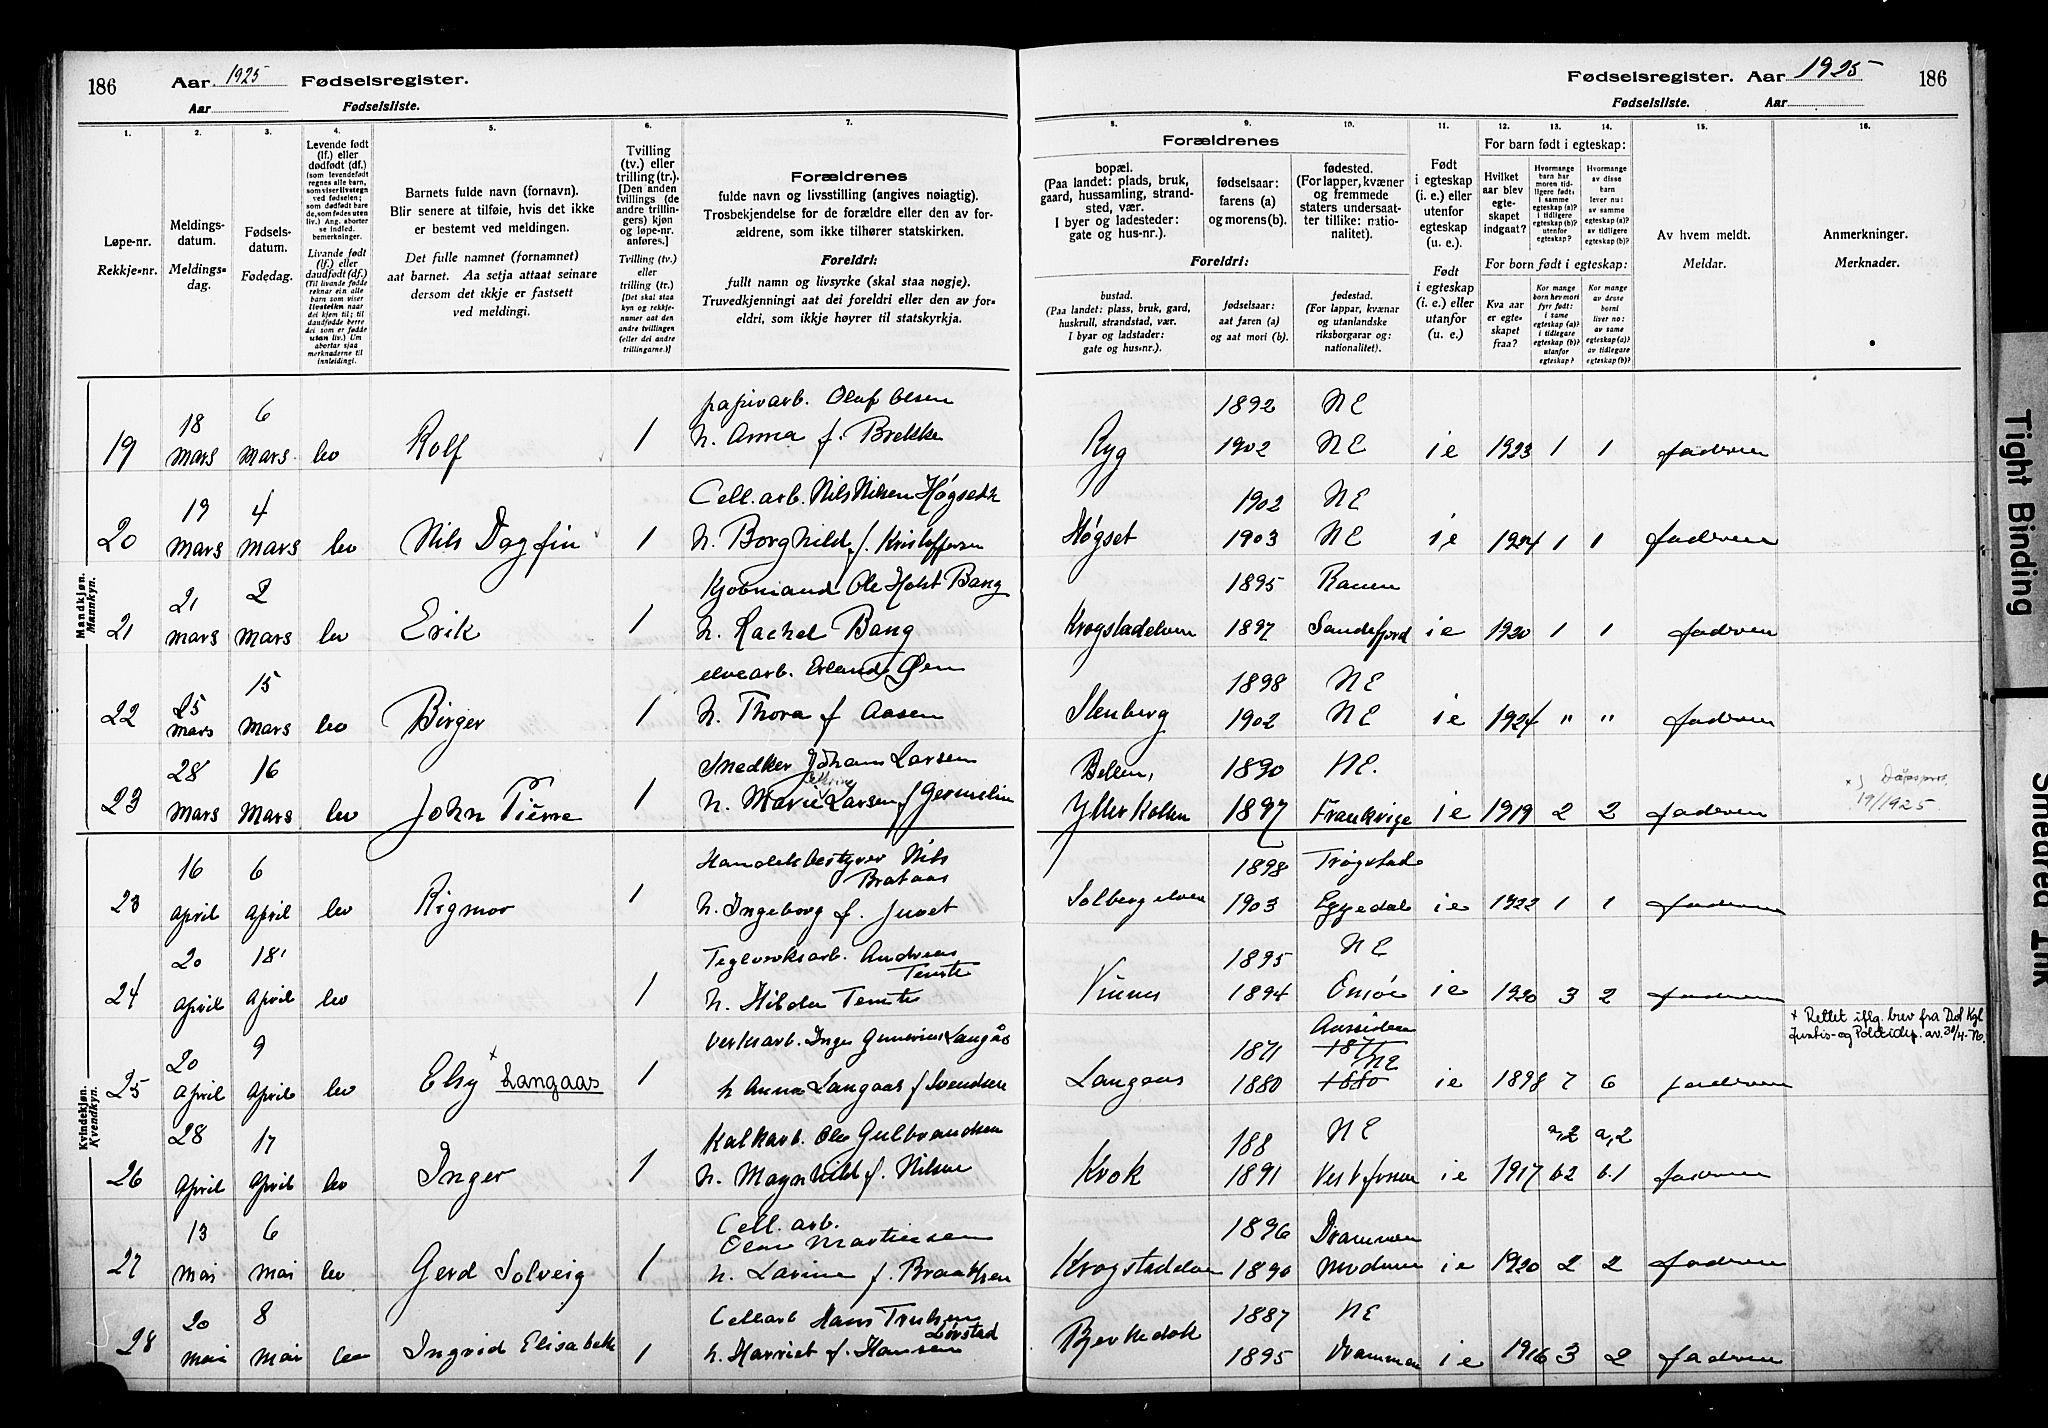 186 Aar 1925 Fødselsregister.
Aar Fødselsliste.
Fødselsregister. Aar 1925 186
Fødselsliste. Aar
1. 2. 3. 4. 5. 6. 7. 8. 9. 10. 11. 12. 13. 14. 15. 16.
Løpe-nr.
Rekkje-nr.
Meldings-
datum.
Meldings-
dag.
Fødsels-
datum.
Fødedag.
Levende født
(lf.) eller
dødfødt (df.)
(som levendefødt
regnes alle barn,
som viser livstegn
ved fødselen;
som dødfødt bare
de, som fødes uten
liv.) Ang. aborter
se indled.
bemerkninger.
Livande født
(lf.) eller
daudfødt (df.)
(Til livande fødde
reknar ein alle
born som viser
livsteikn naar
dei kjem til; til
daudfødde berre
dei som er fødde
utan liv.) Um
abortar sjaa
merknaderne til
innleidingi.
Barnets fulde navn (fornavn).
Blir senere at tilføie, hvis det ikke
er bestemt ved meldingen.
Det fulle namnet (fornamnet)
aat barnet. Aa setja attaat seinare
dersom det ikkje er fastsett
ved meldingi.
Tvilling
(tv.) eller
trilling (tr.).
[Den anden
tvillings (de
andre trillin-
gers) kjøn
og løpe-nr.
anføres.]
Tvilling (tv.)
eller
trilling (tr.)
[Det skal staa
kyn og rekkje-
numer aat den
andre tvillingen
(eller dei andre
trillingarne.)]
Forældrenes
fulde navn og livsstilling (angives nøiagtig).
Trosbekjendelse for de forældre eller den av for-
ældrene, som ikke tilhører statskirken.
Foreldri:
fullt namn og livsyrke (skal staa nøgje).
Truvedkjenningi aat dei foreldri eller den av for-
eldri, som ikkje høyrer til statskyrkja.
Forældrenes
bopæl.
(Paa landet: plads, bruk,
gaard, hussamling, strand-
sted, vær.
I byer og ladesteder:
gate og hus-nr.).
fødselsaar:
farens (a)
og morens (b).
fødested.
(For lapper, kvæner
og fremmede
staters undersaat-
ter tillike: natio-
nalitet).
Foreldri:
bustad.
(Paa landet: plass, bruk, gard,
huskrull, strandstad, vær.
I byar og ladstader:
gate og hus-nr.).
fødselsaar:
aat faren (a)
og aat mori (b).
fødestad.
(For lappar, kvænar
og utanlandske
riksborgarar og:
nationalitet).
Født
i egteskap
(i. e.) eller
utenfor
egteskap
(u. e.).
Født
i egteskap
(i. e.) eller
utanfor
(u. e.).
For barn født i egteskap:
Hvilket
aar blev
egte-
skapet
indgaat?
Hvormange
barn har
moren tid-
ligere født:
i samme
egteskap (a)?
i tidligere
egteskap (b)?
utenfor
egteskap?
Hvormange
av disse
barn
lever nu:
av samme
egteskap (a)?
av tidligere
egteskap (b)?
For born født i egteskap:
Kva aar
er egte-
skapet
fraa?
Kor mange
born hev mori
fyrr født:
i same
egteskap (a)?
i tidlegare
egteskap (b)?
utanfor
egteskap?
Kor mange
av desse
borni
liver no:
av same
egteskap (a)?
av tidlegare
egteskap (b)?
Av hvem meldt.
Meldar.
Anmerkninger.
Merknader.
Mandkjøn.
Mannkyn.
19 18 Mars 6 Mars lev Rolf 1 papirarb. Olaf Olsen
h. Anna f. Brekke Ryg 1892 1902 NE NE i e 1923 1 1 faderen
20 19 Mars 4 Mars lev Nils Dagfin 1 Cell. arb. Nils Nilsen
h. Borghild f. Kristoffersen Høgset 1902 1903 NE NE i e 1924 1 1 faderen
21 21 Mars 2 Mars lev Erik 1 Kjøbmand Ole Holst Bang
h. Rachel Bang Krogstadelven 1895 1897 Sandefjord i e 1920 1 1 faderen
22 25 Mars 15 Mars lev Birger 1 elvearb. Erland Øen
h. Thora f Aasen Stenberg 1898 1902 NE NE i e 1924 " " faderen
23 28 Mars 16 Mars lev John Pierre 1 Snedker Johan Larsen
h. Marie Larsen f 1890 1897 NE. i e 1919 2 2 faderen
19/1925.
Kvindekjøn.
Kvendkyn.
23 16 April 6 April lev Rigmor 1 Handelsbestyrer Nils
Brataas
h. Ingeborg f. Juvet Solbergelven 1898 1903 Trøgstad Eggedal i e 1922 1 1 faderen
24 20 April 18 April lev 1 Teglverksarb. Andreas
h. Hilda 1895 1894 NE i e 1920 3 2 faderen
25 20 April 9 April lev Elsy × Langaas 1 verksarb. Inge Gunerius Langås
h Anna Langaas f Svendsen Langaas 1871 1880 1871 NE 1880 i e 1898 7 6 faderen
× Rettet iflg. brev fra Det Kgl
Justis- og Politidep. av
26 28 April 17 April lev Inger 1 Kalkarb. Ole Gulbrandsen
h. Magnhild f. Nilsen Krok 188 1891 NE Vestfossen i e 1917 a,2 b2 a,2 b.1 faderen
27 13 Mai 6 Mai lev Gerd Solveig 1 Cell. arb.
Olav Martinsen
h. Lovine f. Krogstadelven 1896 1890 Drammen Modum i e 1920 2 2 faderen
28 20 Mai 8 Mai lev Ingrid Elisabeth 1 Cellarb Hans
Lørstad
h. Harriet f. Hansen 1887 1895 NE Drammen i e 1916 3 2 faderen
Tight Binding
Smeared Ink